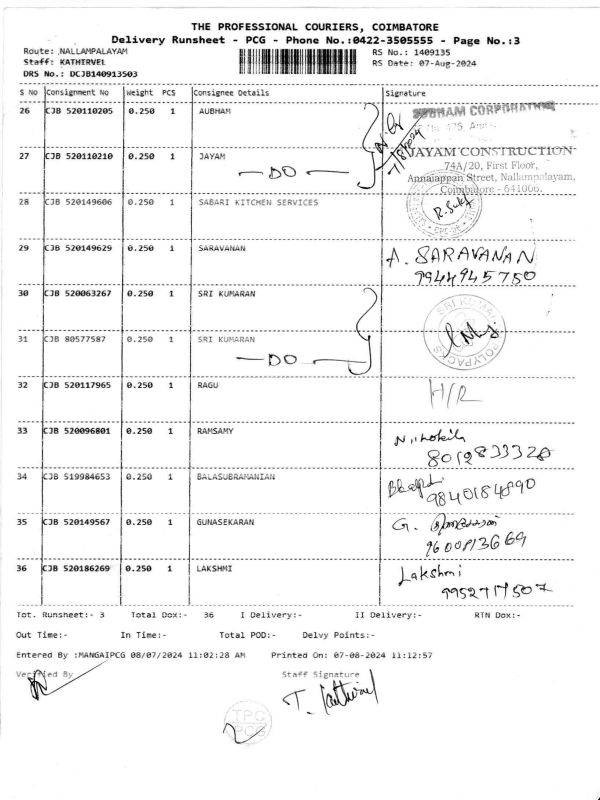 THE PROFESSIONAL COURIERS, COIMBATORE
Delivery Runsheet - PCG - Phone No.:0422-3505555 - Page No.:3
Route: NALLAMPALAYAM
RS No.: 1409135
Staff: KATHIRVEL
RS Date: 07-Aug-2024
DRS No.: DCJB140913503
S No Consignment No Weight PCS Consignee Details Signature
26 CJB 520110205 0.250 1 AUBHAM
CORPORATION
7/8/2024
27 CJB 520110210 0.250 1 JAYAM
JAYAM CONSTRUCTION
74A/20, First Floor,
Annaiappan Street, Nallampalayam,
Coimbatore - 641006.
— DO —
28 CJB 520149606 0.250 1 SABARI KITCHEN SERVICES
29 CJB 520149629 0.250 1 SARAVANAN
A. SARAVANAN
9944945750
30 CJB 520063267 0.250 1 SRI KUMARAN
SRI KUMARAN POLYPACKS
31 CJB 80577587 0.250 1 SRI KUMARAN
— DO —
32 CJB 520117965 0.250 1 RAGU
H/R
33 CJB 520096801 0.250 1 RAMSAMY
8012833328
34 CJB 519984653 0.250 1 BALASUBRAMANIAN
9840184890
35 CJB 520149567 0.250 1 GUNASEKARAN
G.
36 CJB 520186269 0.250 1 LAKSHMI
Lakshmi
9952717507
Tot. Runsheet:- 3 Total Dox:- 36 I Delivery:- II Delivery:- RTN Dox:-
Out Time:- In Time:- Total POD:- Delvy Points:-
Entered By :MANGAIPCG 08/07/2024 11:02:28 AM Printed On: 07-08-2024 11:12:57
Verified By Staff Signature
T. Kathirvel
TPC
PCG